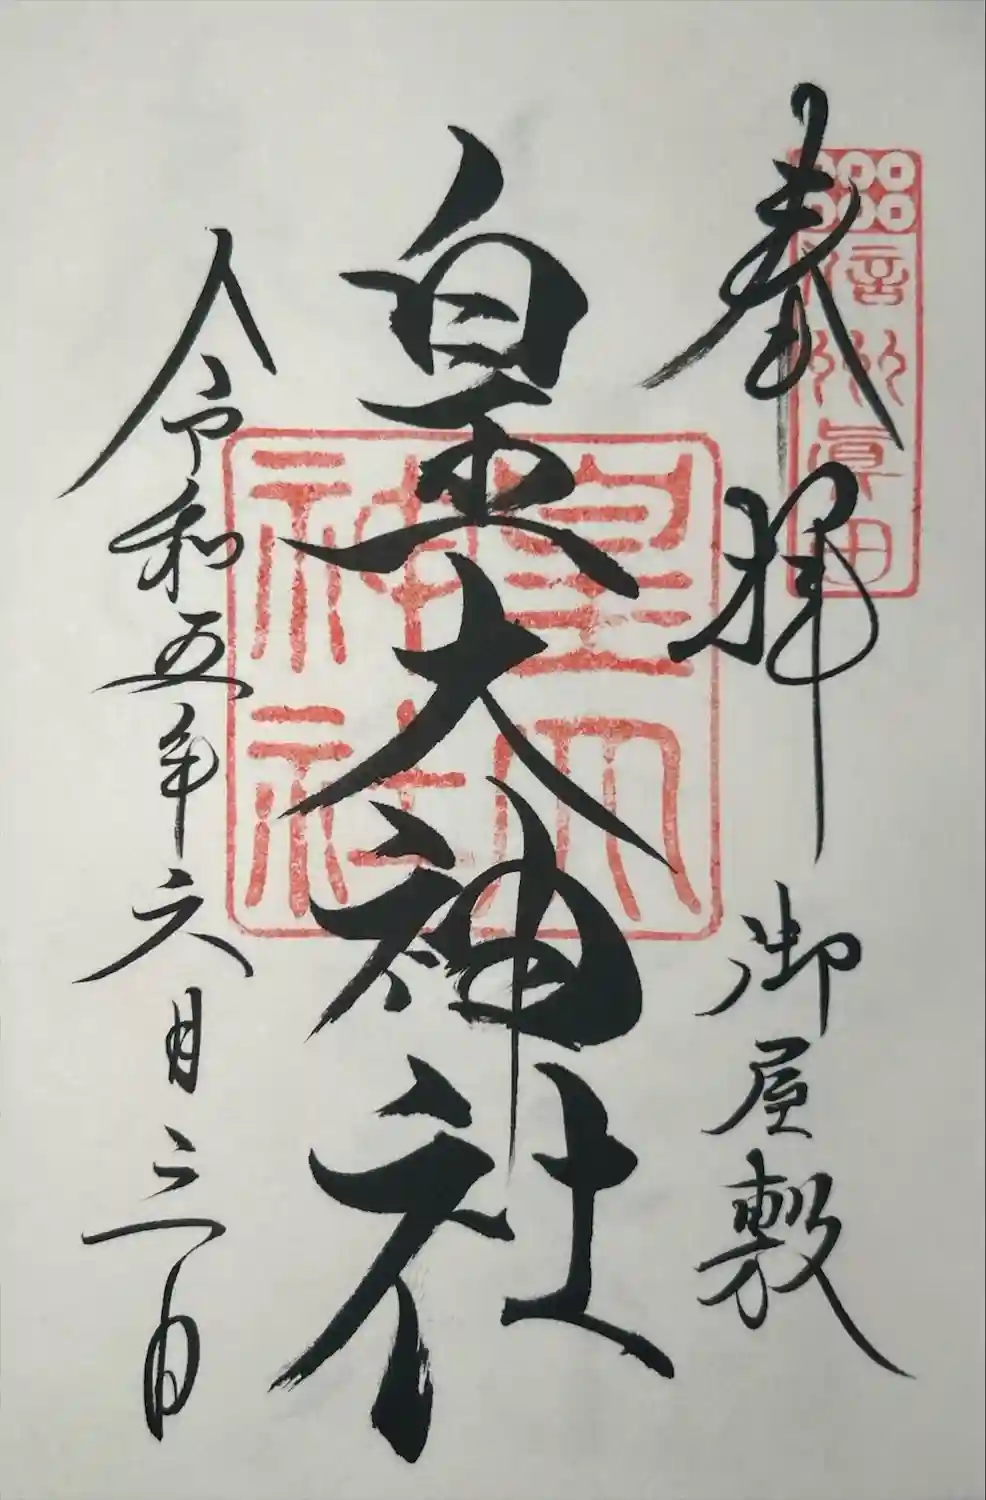 奉拝
御屋敷
信州眞田
皇大神社
皇大
神社
令和五年六月三日